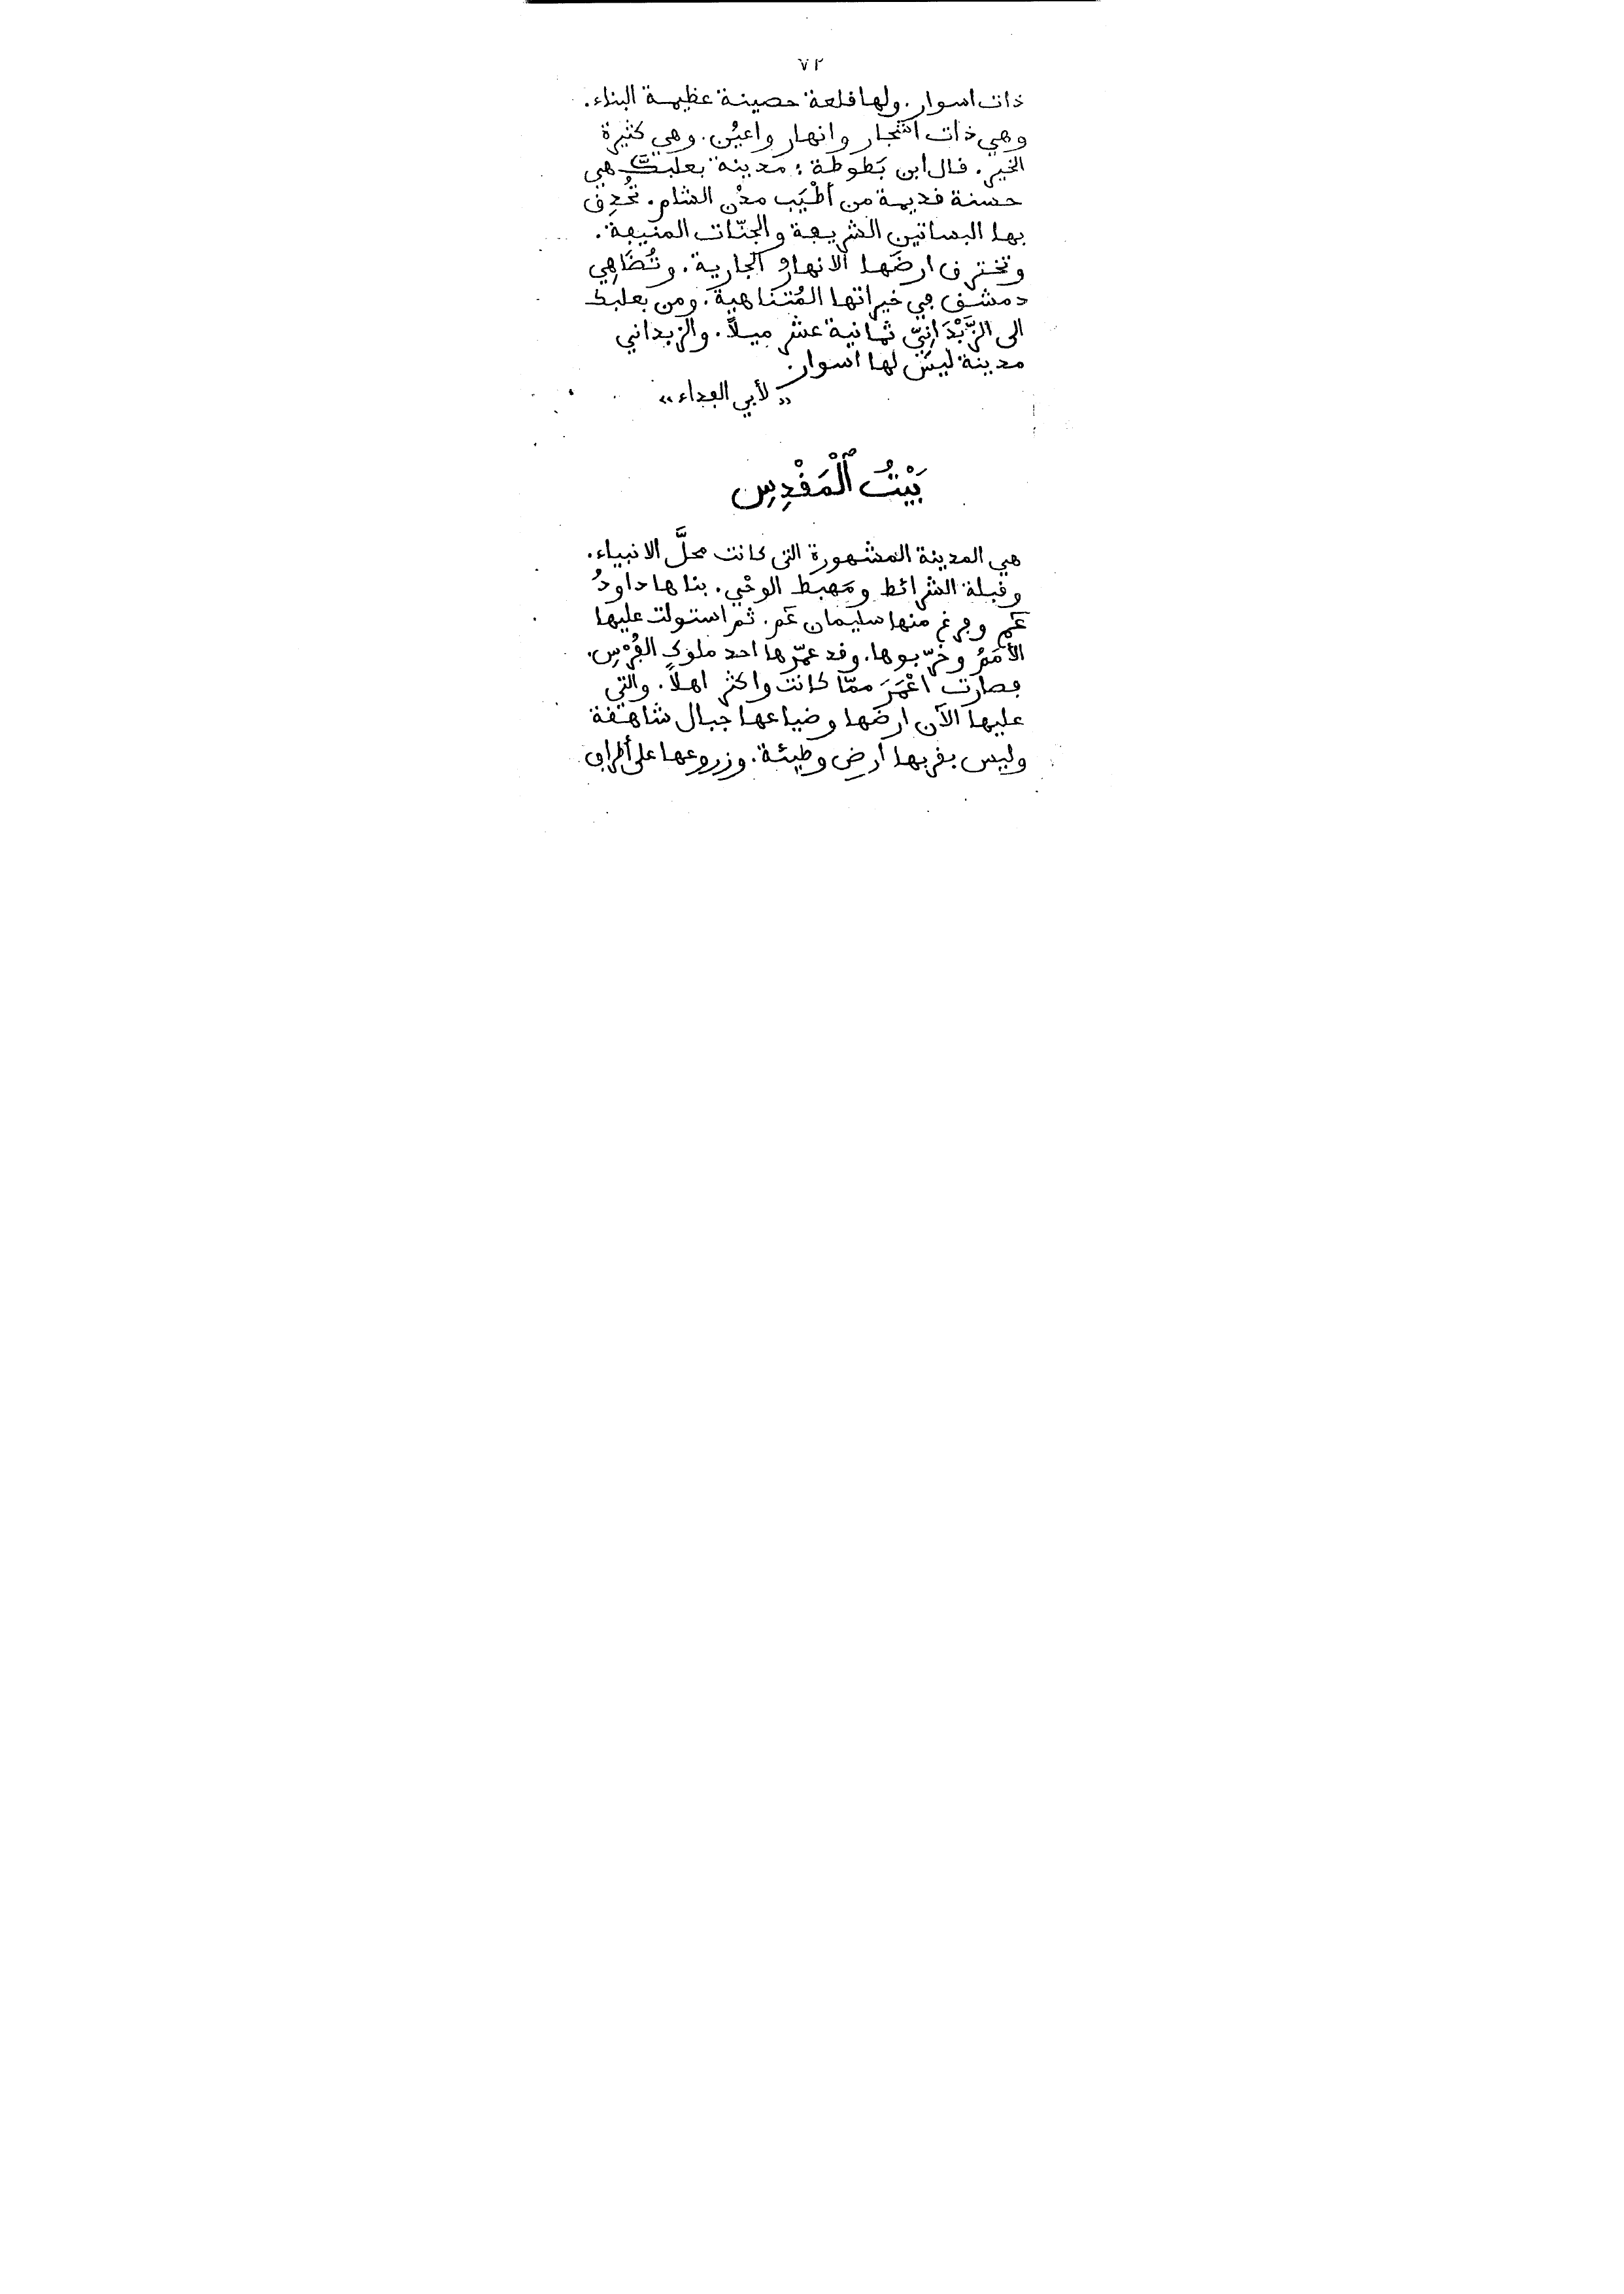 ٧٢
ذات اسوار. ولها قلعة حصينة عظيمة البناء.
وهي ذات اشجار وانهار واعيُن. وهي كثيرة
الخير. قال ابن بَطوطة : مدينة بعلبكّ هي
حسنة قديمة من أطْيَب مدُن الشام. تُحْدِق
بها البساتين الشريفة والجنّات المنيفة.
وتخترق ارضَها الانهارُ الجارية. وتُضَاهِي
دمشق في خيراتها المُتناهية. ومن بعلبك
الى الزَّبْدَانِيّ ثمانية عشر ميلاً. والزبداني
مدينة ليس لها اسوار.
«لأبي الفداء»
بَيْتُ ٱلْمَقْدِسِ
هي المدينة المشهورة التي كانت محلَّ الانبياء.
وقبلة الشرائط ومَهبط الوحْي. بناها داودُ
عَم وفرغ منها سليمان عَم. ثم استولت عليها
الأُمَمُ وخرّبوها. وقد عمّرها احد ملوك الفُرْسِ.
فصارت اعْمَرَ ممّا كانت واكثر اهلاً. والتي
عليها الآن ارضها وضياعها جبال شاهقة
وليس بقربها أرض وطيئة. وزروعها على أطراف